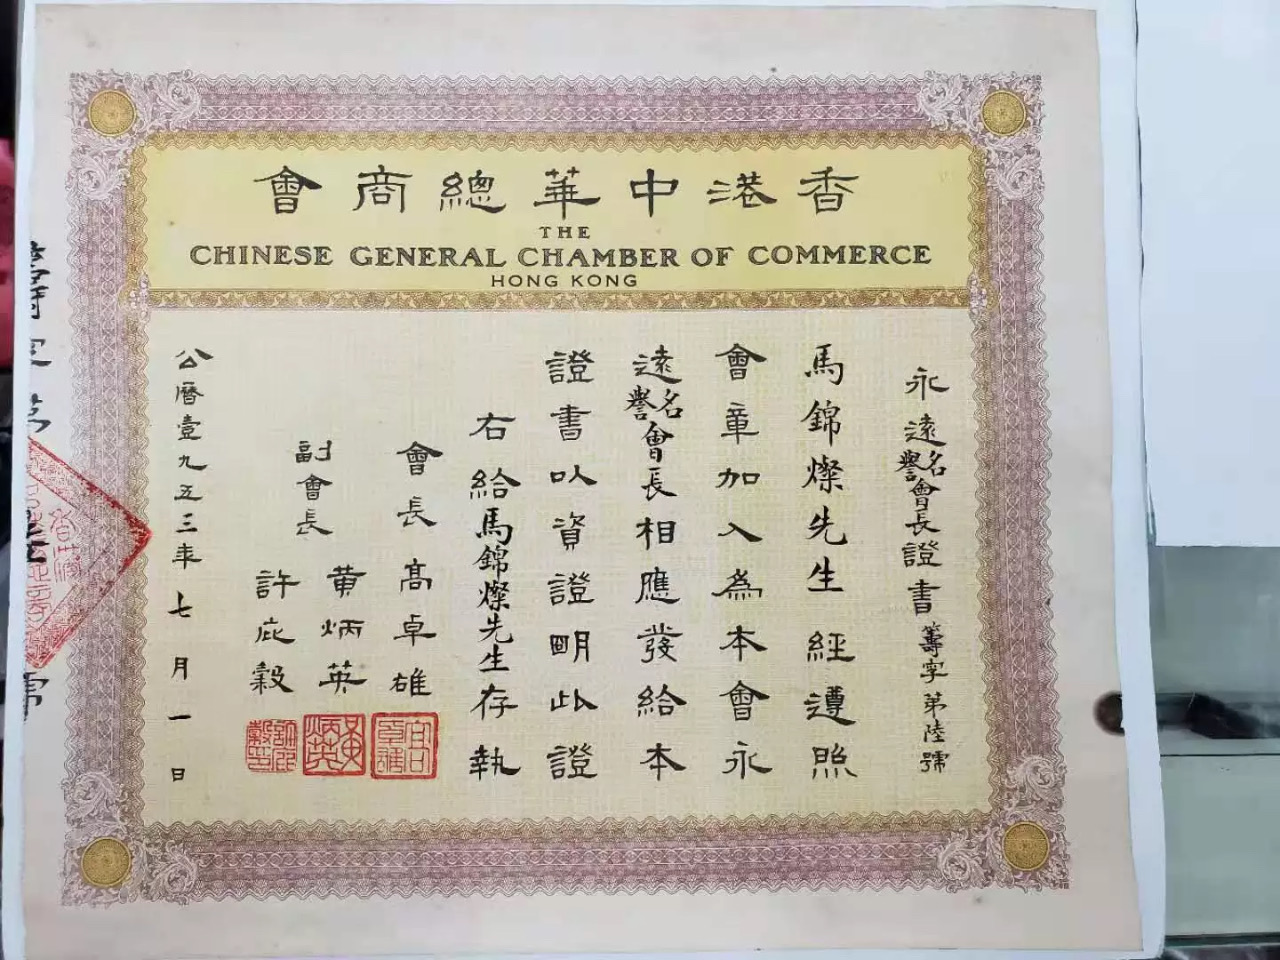 香港中華總商會
THE
CHINESE GENERAL CHAMBER OF COMMERCE
HONG KONG
永遠名譽會長證書籌字第陸號
馬錦燦先生經遵照
會章加入為本會永
遠名譽會長相應發給本
證書以資證明此證
右給馬錦燦先生存執
會長高卓雄
副會長黃炳英
許庇穀
公曆壹九五三年七月一日